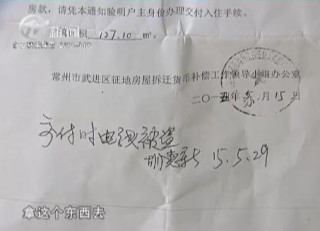 房款，请凭本通知验明户主身份办理交付入住手续。
127.10 m².
常州市武进区征地房屋拆迁货币补偿工作领导小组办公室
二〇一五年5月15日
交付时电线被盗
15.5.29
拿这个东西去